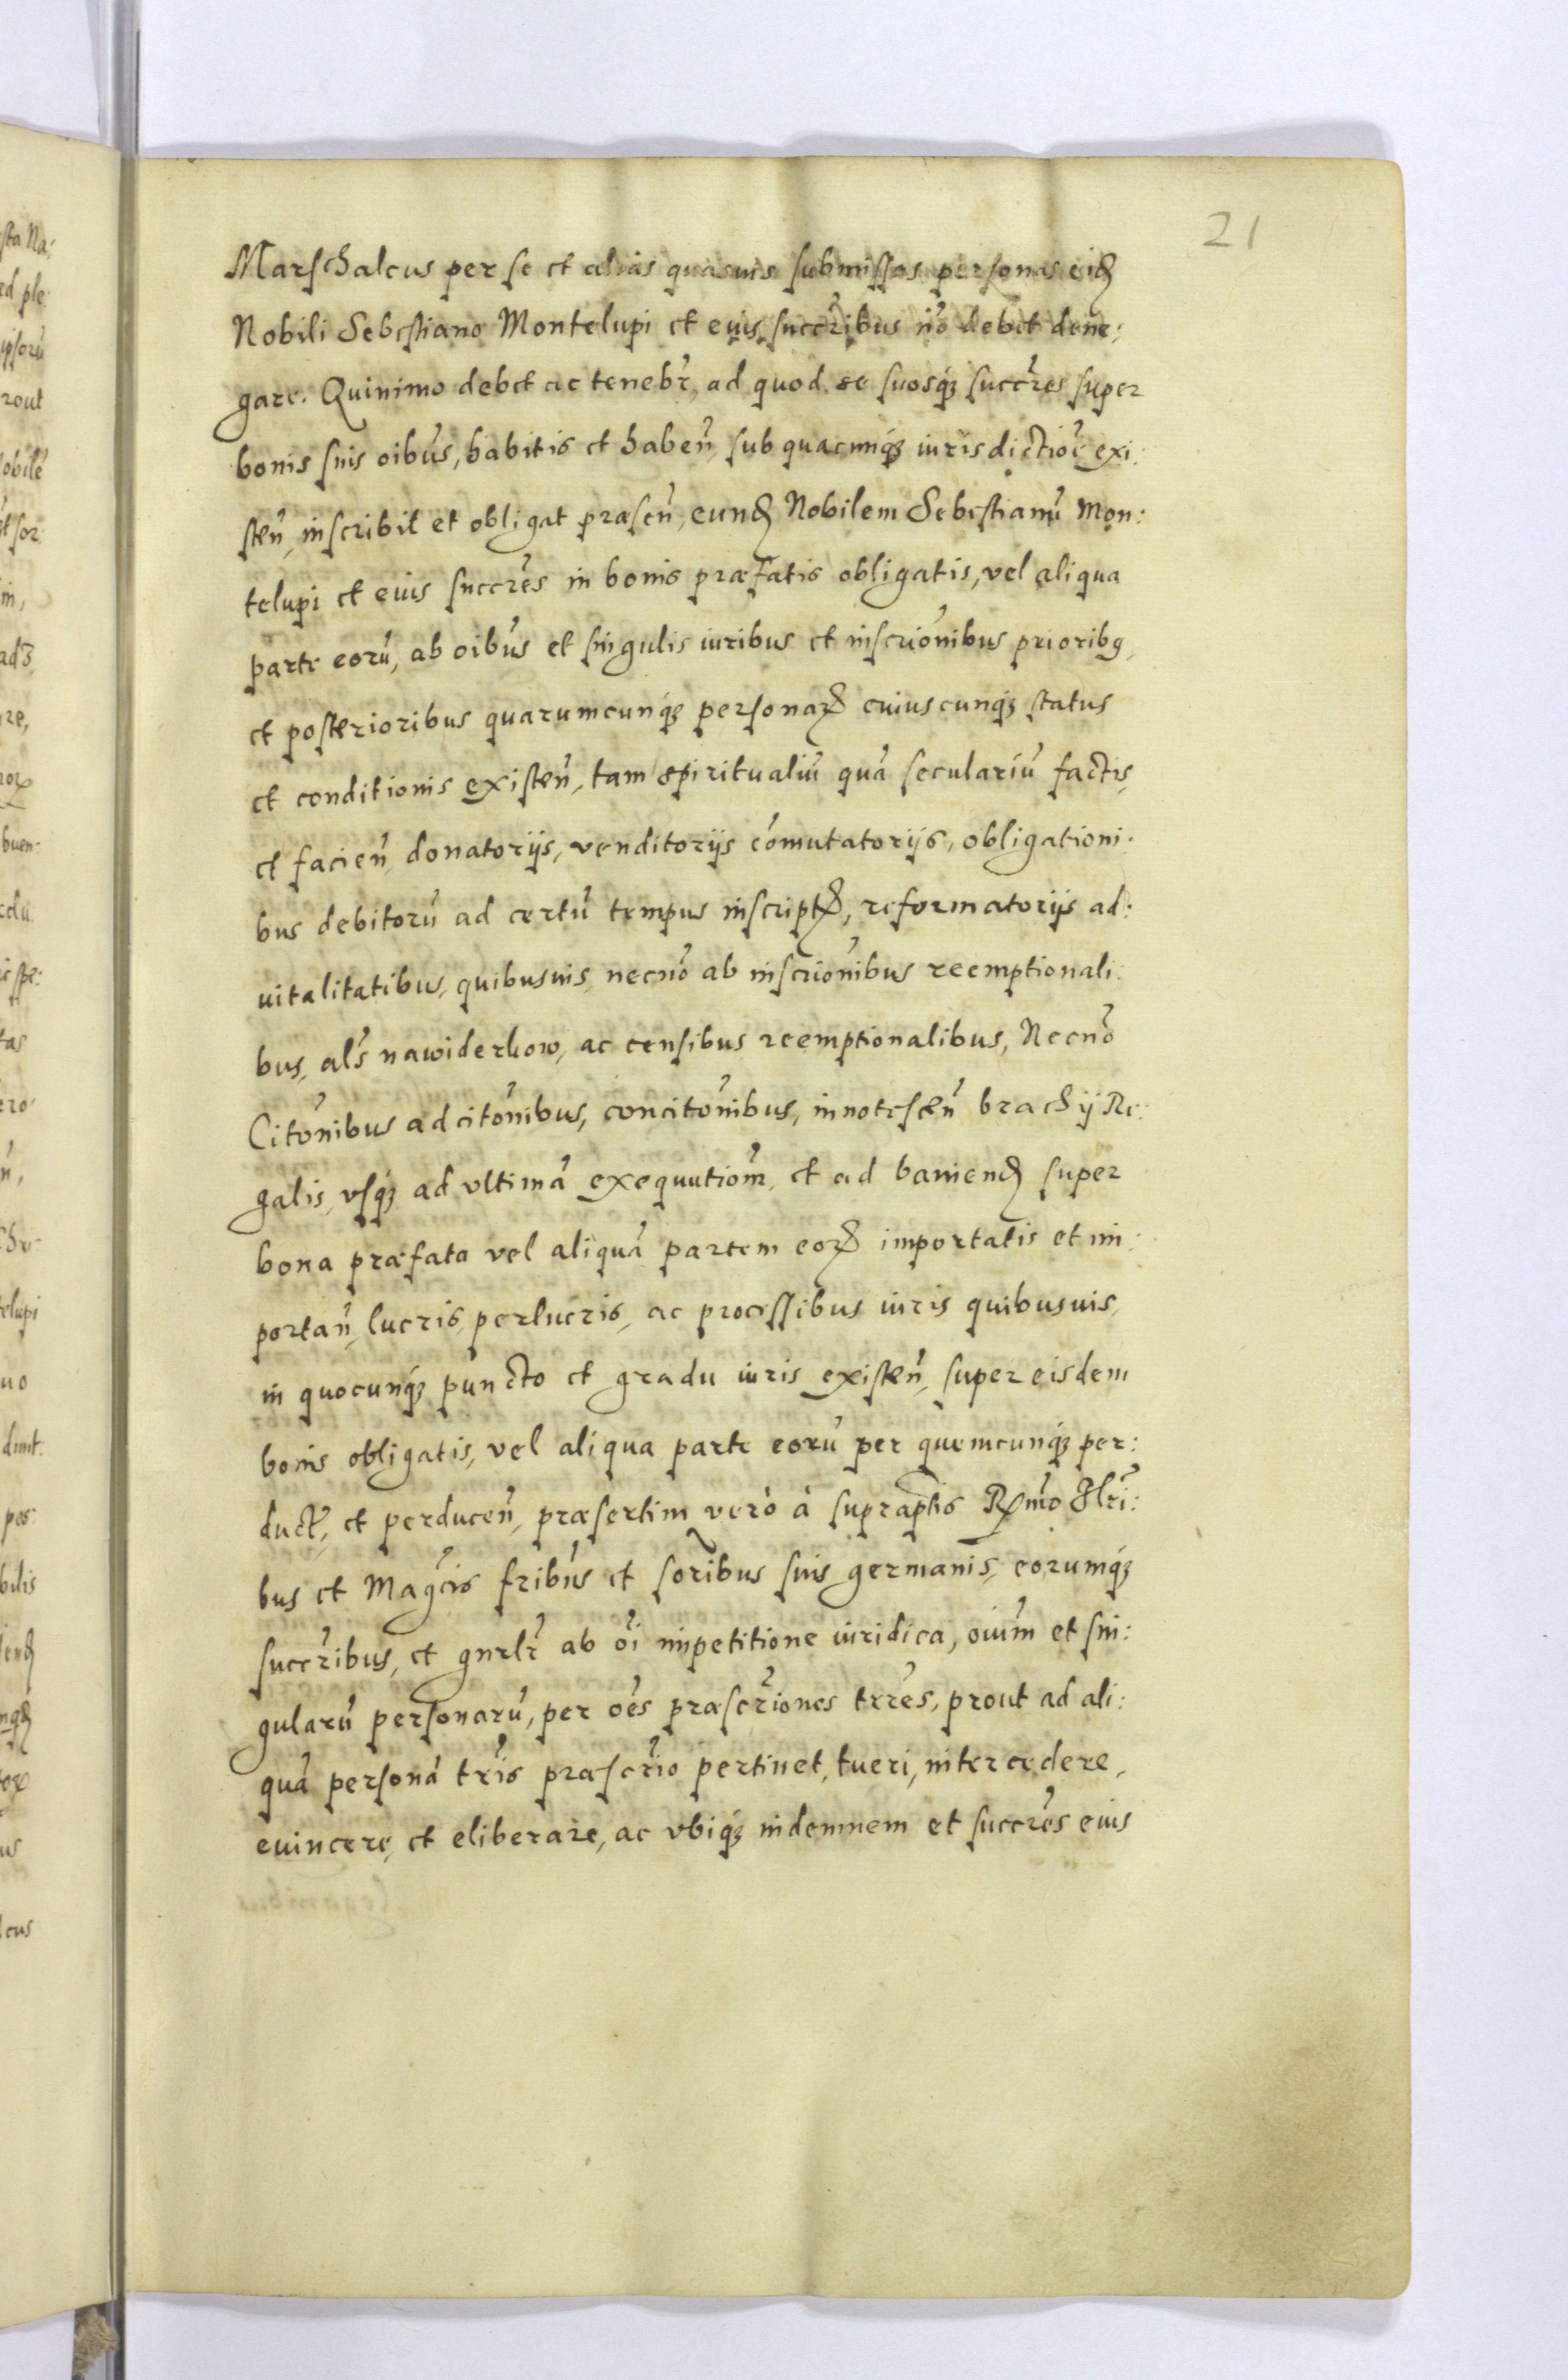 21
Marschalcus per se et alias quasuis submissas personas eid̃
Nobili Sebestiano Montelupi et eius succr̃ibus nõ debet dene:
gare. Quinimo debet ac tenebr̃, ad quod se suosq́ꝫ succr̃es super
bonis suis oib̃us, habitis et habeñ, sub quacunq́ꝫ iurisdictiõe exi:
steñ, inscribit et obligat præseñ, eund̃ Nobilem Sebestianũ Mon:
telupi et eius succr̃es in bonis præfatis obligatis, vel aliqua
parte eorũ, ab oib̃us et singulis iuribus et inscriõnibus prioribꝯ,
et posterioribus quarumcunq́ꝫ personaꝝ cuiuscunq́ꝫ status
et conditionis existeñ, tam spiritualiũ quã seculariũ factis,
et facieñ, donatorijs, venditorijs cõmutatorijs, obligationi:
bus debitorũ ad certũ tempus inscriptꝝ, reformatorijs ad:
uitalitatibus, quibusuis, necnõ ab inscriõnibus reemptionali:
bus, als̃ nawiderkow, ac censibus reemptionalibus, Necnõ
Citõnibus adcitõnibus, concitõnibus, innotesceñ brachij Re:
galis, vsq́ꝫ ad vltimã exequutiõm, et ad baniend̃ super
bona præfata vel aliquã partem eoꝝ importatis et im:
portañ, lucris, perlucris, ac processibus iuris quibusuis,
in quocunq́ꝫ puncto et gradu iuris existeñ, super eisdem
bonis obligatis, vel aliqua parte eorũ per quemcunq́ꝫ per:
duct̃, et perduceñ, præsertim verò à suprap̃tis Rx̃mo Illr̃i:
bus et Mag̃cis frib̃us et sor̃ibus suis germanis, eorumq́ꝫ
succr̃ibus, et gnr̃lr̃ ab oĩ impetitione iuridica, oiũm et sin:
gularũ personarũ, per oẽs præscr̃iones trr̃es, prout ad ali:
quã personã tr̃is præscr̃io pertinet, tueri, intercedere,
euincere, et eliberare, ac vbiq́ꝫ indemnem et succr̃es eius